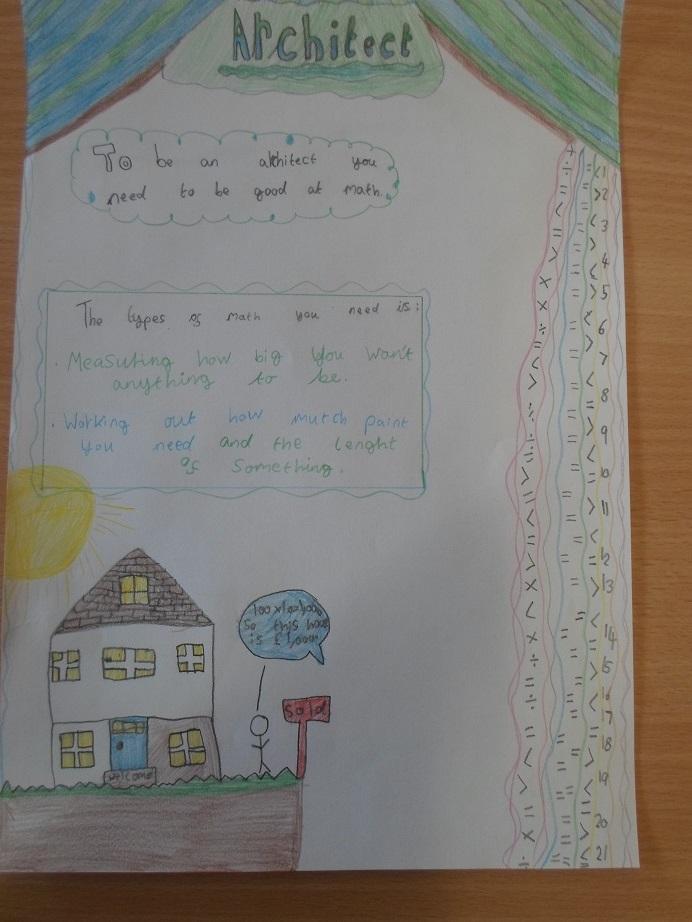 Architect
To be an architect you
need to be good at math.
The types of math you need is:
. Measuring how big you want
anything to be.
. Working out how mutch paint
you need and the lenght
of something.
100 x 10 = 1,000
So this house
is £1,000
Sold
Welcome
1
2
3
4
5
6
7
8
9
10
11
12
13
14
15
16
17
18
19
20
21